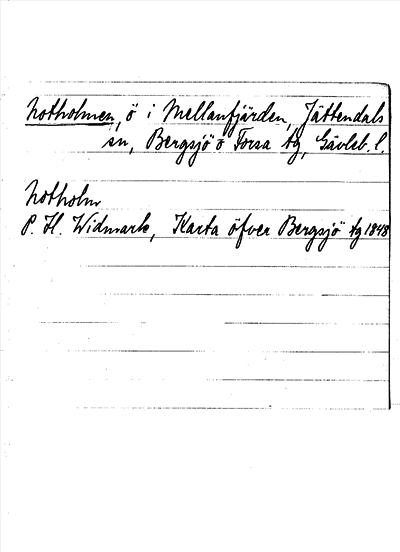 Notholmen, ö i Mellanfjärden, Jättendals
sn, Bergsjö o Forsa tg, Gävleb. l.
Notholm
P. H. Widmark, Karta öfver Bergsjö tg 1848